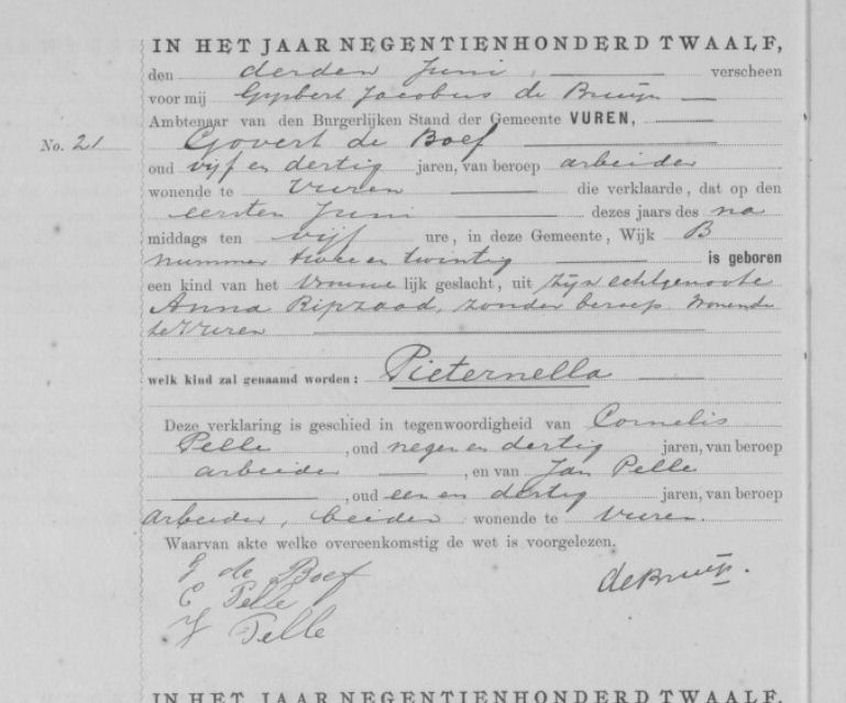 IN HET JAAR NEGENTIENHONDERD TWAALF,
den derden Juni, verscheen
voor mij Gijsbert Jacobus de Bruijn
Ambtenaar van den Burgerlijken Stand der Gemeente VUREN,
No. 21 Govert de Boef
oud vijf en dertig jaren, van beroep arbeider
wonende te Vuren die verklaarde, dat op den
eersten Juni dezes jaars des na
middags ten vijf ure, in deze Gemeente, Wijk B
nummer twee en twintig is geboren
een kind van het vrouwelijk geslacht, uit zijn echtgenoote
Anna Ripzaad, zonder beroep wonende
te Vuren
welk kind zal genaamd worden: Pieternella
Deze verklaring is geschied in tegenwoordigheid van Cornelis
Pelle, oud negen en dertig jaren, van beroep
arbeider, en van Jan Pelle
, oud een en dertig jaren, van beroep
arbeider, beiden wonende te Vuren.
Waarvan akte welke overeenkomstig de wet is voorgelezen.
G de Boef
de Bruijn.
C Pelle
J Pelle
IN HET JAAR NEGENTIENHONDERD TWAALF,